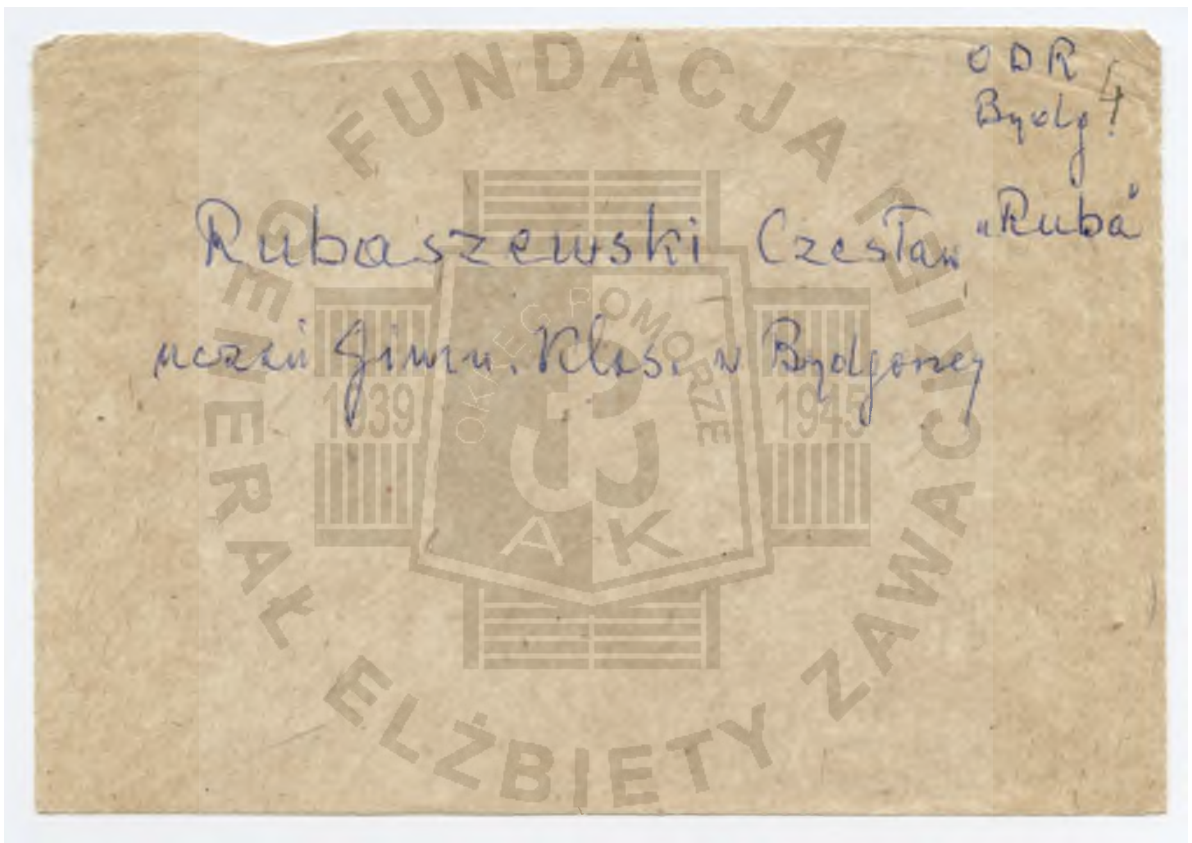 ODR 4
Bydg.
Rubaszewski Czesław „Ruba"
uczeń Gimn. Klas. w Bydgoszczy
FUNDACJA GENERAŁ ELŻBIETY ZAWACKIEJ
OKRĘG POMORZE
1939 1945
AK